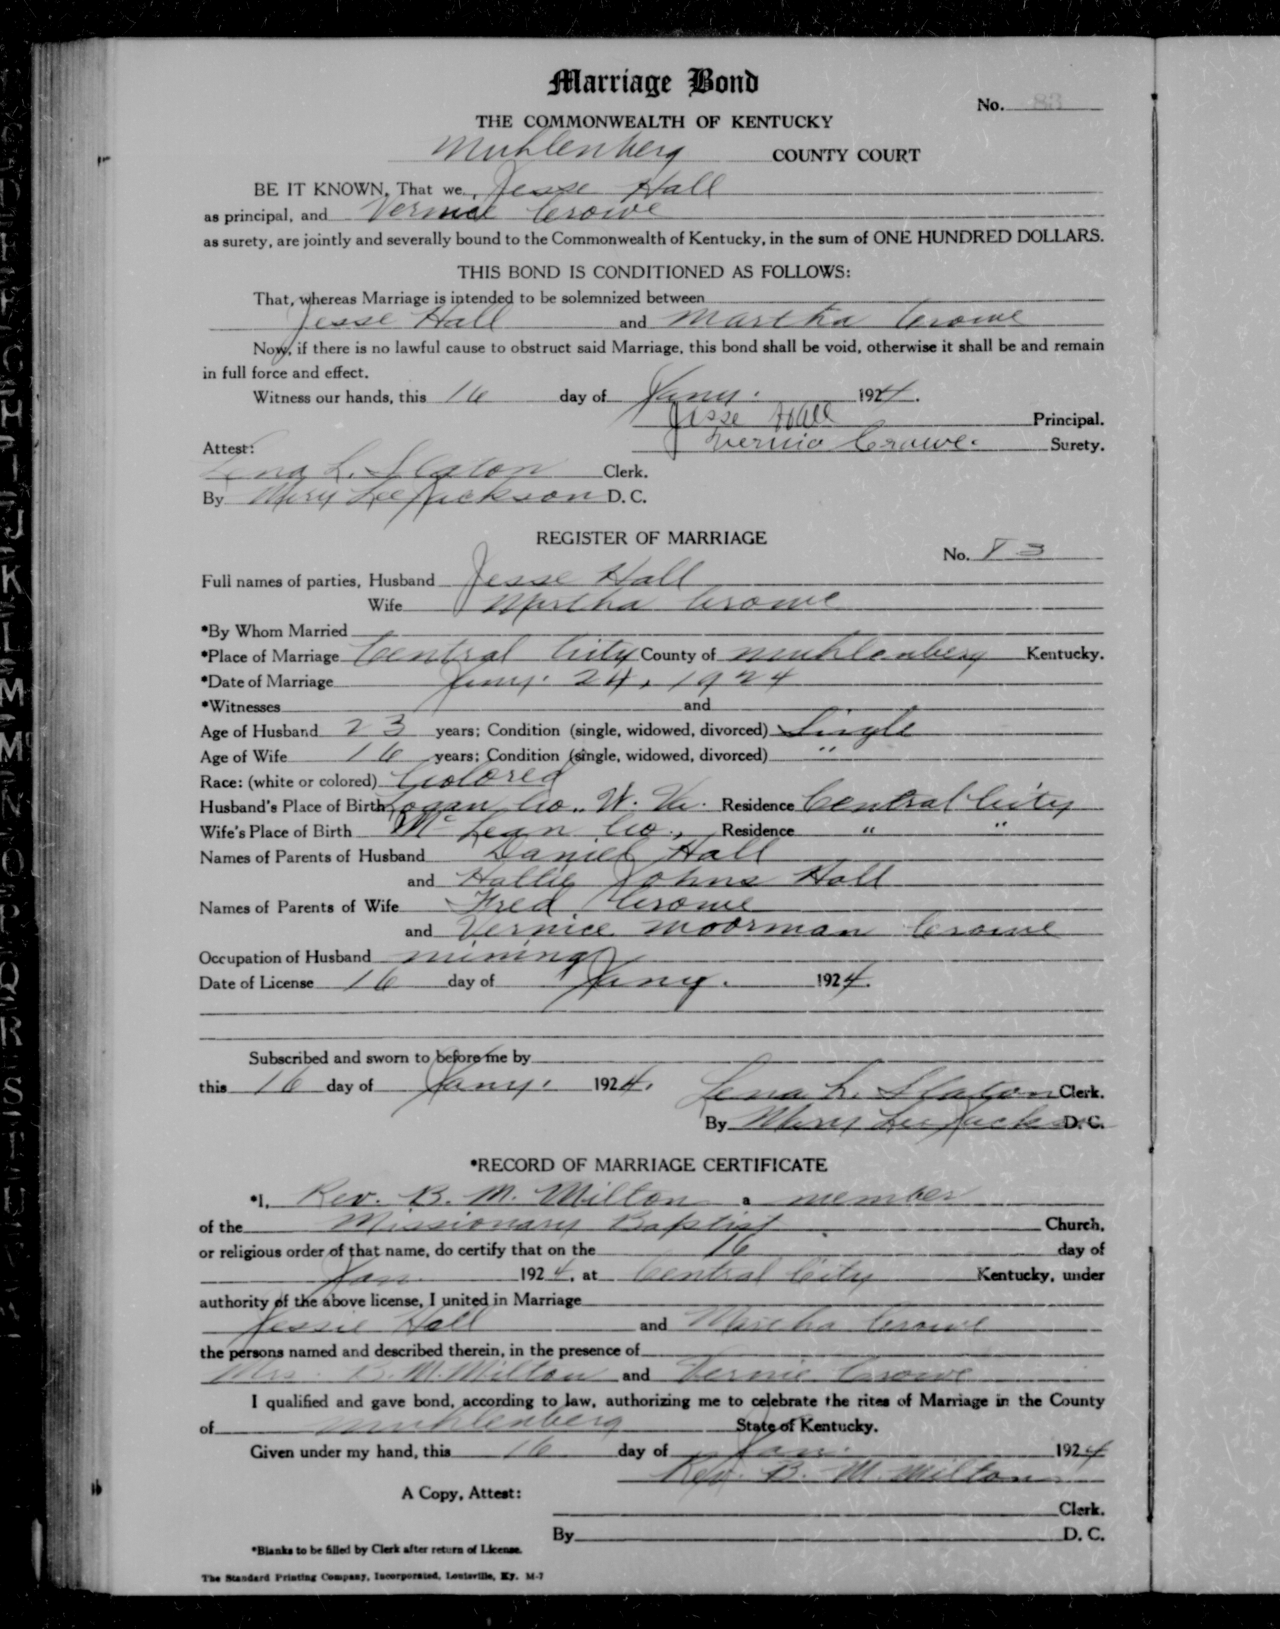 Marriage Bond
No. 83
THE COMMONWEALTH OF KENTUCKY
Muhlenberg COUNTY COURT
BE IT KNOWN, That we, Jesse Hall
as principal, and Vernice Crowe
as surety, are jointly and severally bound to the Commonwealth of Kentucky, in the sum of ONE HUNDRED DOLLARS.
THIS BOND IS CONDITIONED AS FOLLOWS:
That, whereas Marriage is intended to be solemnized between
Jesse Hall and Martha Crowe
Now, if there is no lawful cause to obstruct said Marriage, this bond shall be void, otherwise it shall be and remain
in full force and effect.
Witness our hands, this 16 day of Jany. 1924.
Jesse Hall Principal.
Attest: Vernice Crowe. Surety.
Lena L. Slaton Clerk.
By Mary Lee Jackson D. C.
REGISTER OF MARRIAGE
No. 83
Full names of parties, Husband Jesse Hall
Wife Martha Crowe
*By Whom Married
*Place of Marriage Central City County of Muhlenberg Kentucky.
*Date of Marriage Jany. 24, 1924
*Witnesses and
Age of Husband 23 years; Condition (single, widowed, divorced) Single
Age of Wife 16 years; Condition (single, widowed, divorced) "
Race: (white or colored) Colored
Husband's Place of Birth Logan Co., W. Va. Residence Central City
Wife's Place of Birth McLean Co., Residence " "
Names of Parents of Husband Daniel Hall
and Hallie Johns Hall
Names of Parents of Wife Fred Crowe
and Vernice Moorman Crowe
Occupation of Husband mining
Date of License 16 day of Jany. 1924.
Subscribed and sworn to before me by
this 16 day of Jany. 1924. Lena L. Slaton Clerk.
By Mary Lee Jackson D. C.
*RECORD OF MARRIAGE CERTIFICATE
*I, Rev. B. M. Milton a member
of the Missionary Baptist Church,
or religious order of that name, do certify that on the 16 day of
Jan. 1924, at Central City Kentucky, under
authority of the above license, I united in Marriage
Jessie Hall and Martha Crowe
the persons named and described therein, in the presence of
Mrs. B. M. Milton and Vernie Crowe
I qualified and gave bond, according to law, authorizing me to celebrate the rites of Marriage in the County
of Muhlenberg State of Kentucky.
Given under my hand, this 16 day of Jan. 1924
Rev. B. M. Milton
A Copy, Attest:
Clerk.
By D. C.
*Blanks to be filled by Clerk after return of License.
The Standard Printing Company, Incorporated, Louisville, Ky. M-7